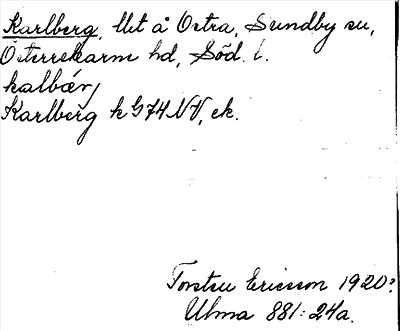 Karlberg, Ut å Östra, Sundby sn,
Österrekarne hd, Söd. l.
kalbær,
Karlberg k G74 NV, ek.
Torsten Ericsson 1920?
Ulma 881:24a.